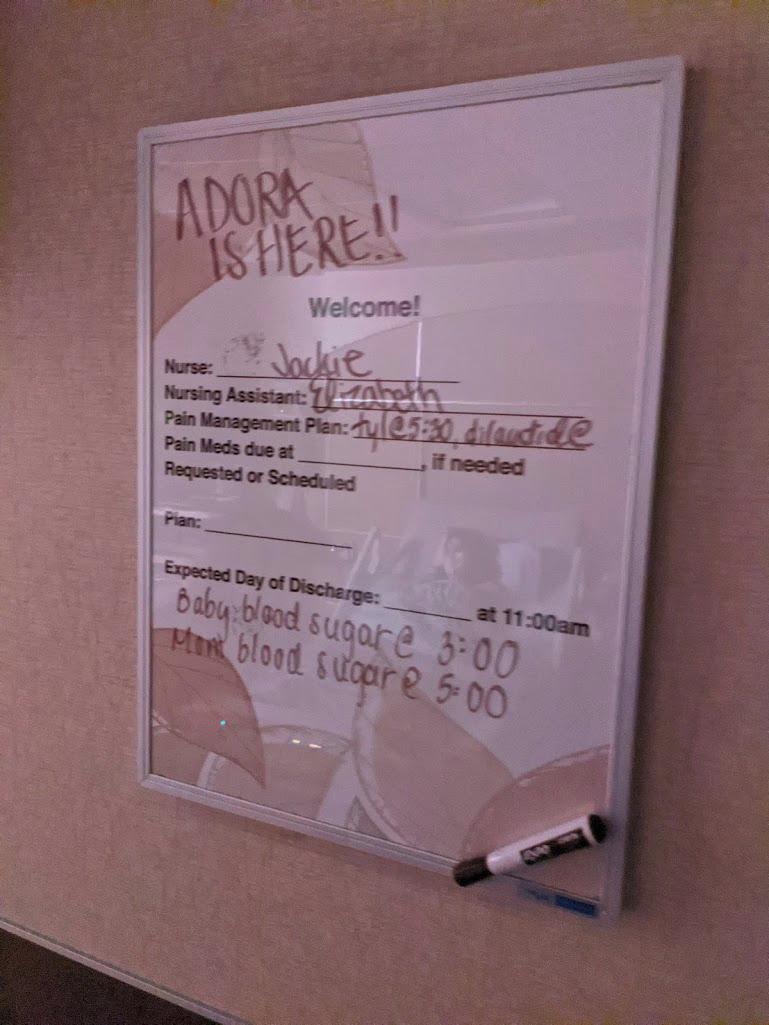 ADORA
IS HERE!!
Welcome!
Nurse: Jackie
Nursing Assistant: Elizabeth
Pain Management Plan: tyl@5:30, dilaudid@
Pain Meds due at ____________, if needed
Requested or Scheduled
Plan: ____________
Expected Day of Discharge: ________ at 11:00am
Baby: blood sugar @ 3:00
Mom: blood sugar @ 5:00
EXPO